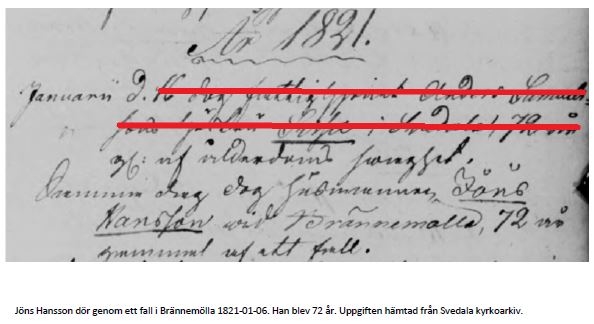 År 1821.
Januarii d. dog Anders
Sissa i Svedala, 72 år
gl: af ålderdoms svaghet.
Samma dag dog husmannen Jöns
Hansson wid Brännemölla, 72 år
gammal af ett fall.
Jöns Hansson dör genom ett fall i Brännemölla 1821-01-06. Han blev 72 år. Uppgiften hämtad från Svedala kyrkoarkiv.